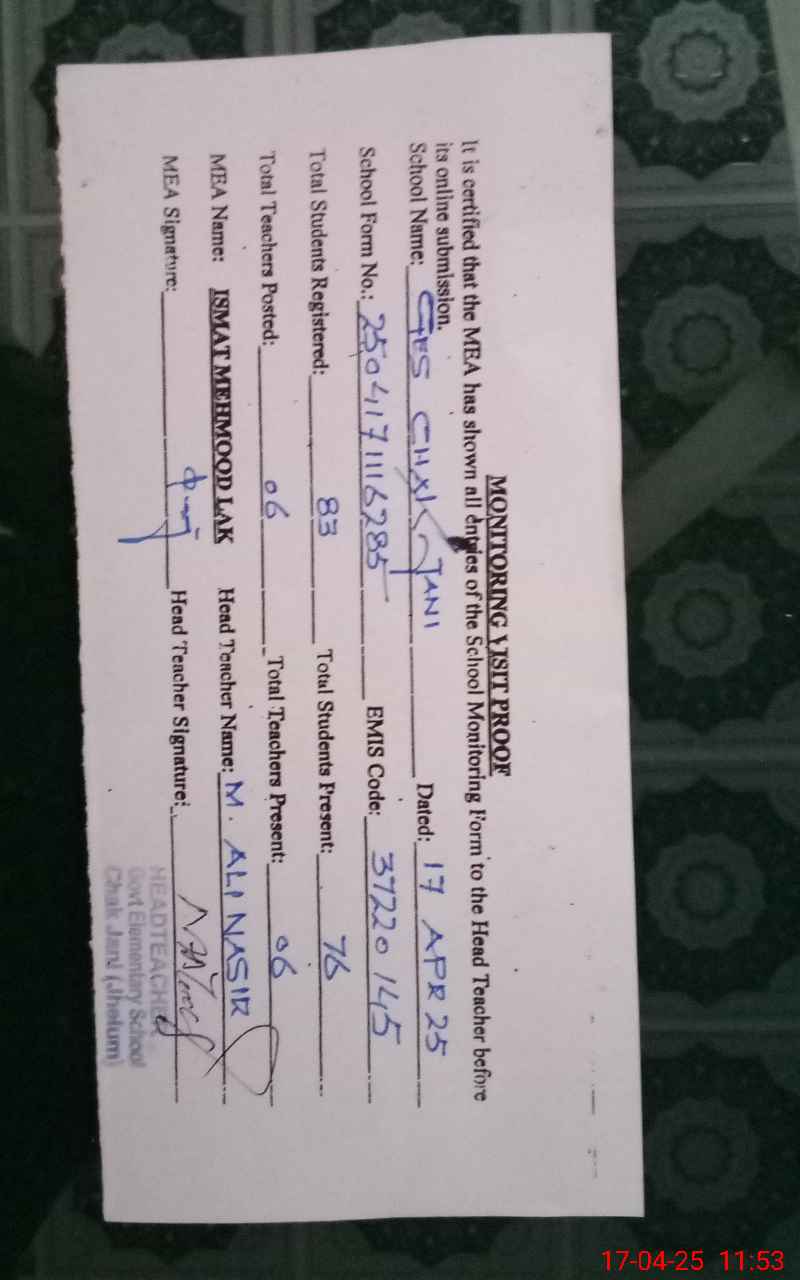 MONITORING VISIT PROOF
It is certified that the MEA has shown all entries of the School Monitoring Form to the Head Teacher before
its online submission.
School Name: GES CHAK JANI Dated: 17 APR 25
School Form No.: 2504171116285 EMIS Code: 37220145
Total Students Registered: 83 Total Students Present: 76
Total Teachers Posted: 06 Total Teachers Present: 06
MEA Name: ISMAT MEHMOOD LAK Head Teacher Name: M. ALI NASIR
MEA Signature: Head Teacher Signature:
HEADTEACHER
Govt Elementary School
Chak Jani (Jhelum)
17-04-25 11:53